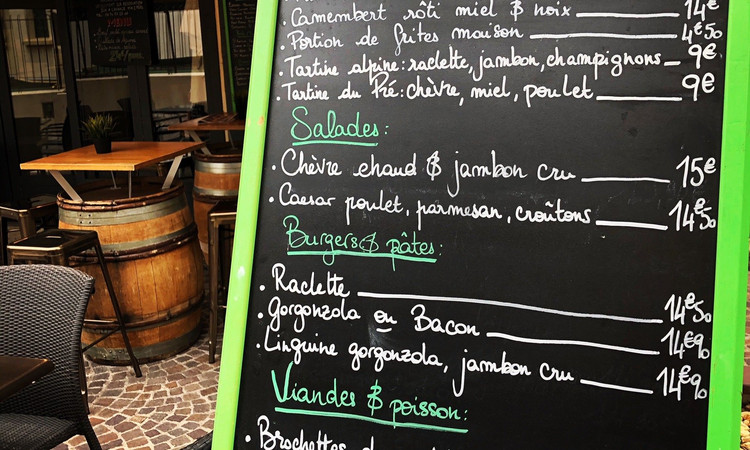 MENU
Camembert rôti miel & noix 14€
. Portion de frites maison 4€50
. Tartine alpine: raclette, jambon, champignons 9€
. Tartine du Pré: chèvre, miel, poulet 9€
Salades:
. Chèvre chaud & jambon cru 15€
. Caesar poulet, parmesan, croûtons 14€50
Burgers & pâtes:
. Raclette 14€50
. Gorgonzola ou Bacon 14€90
. Linguine gorgonzola, jambon cru 14€90
Viandes & poisson:
. Brochettes